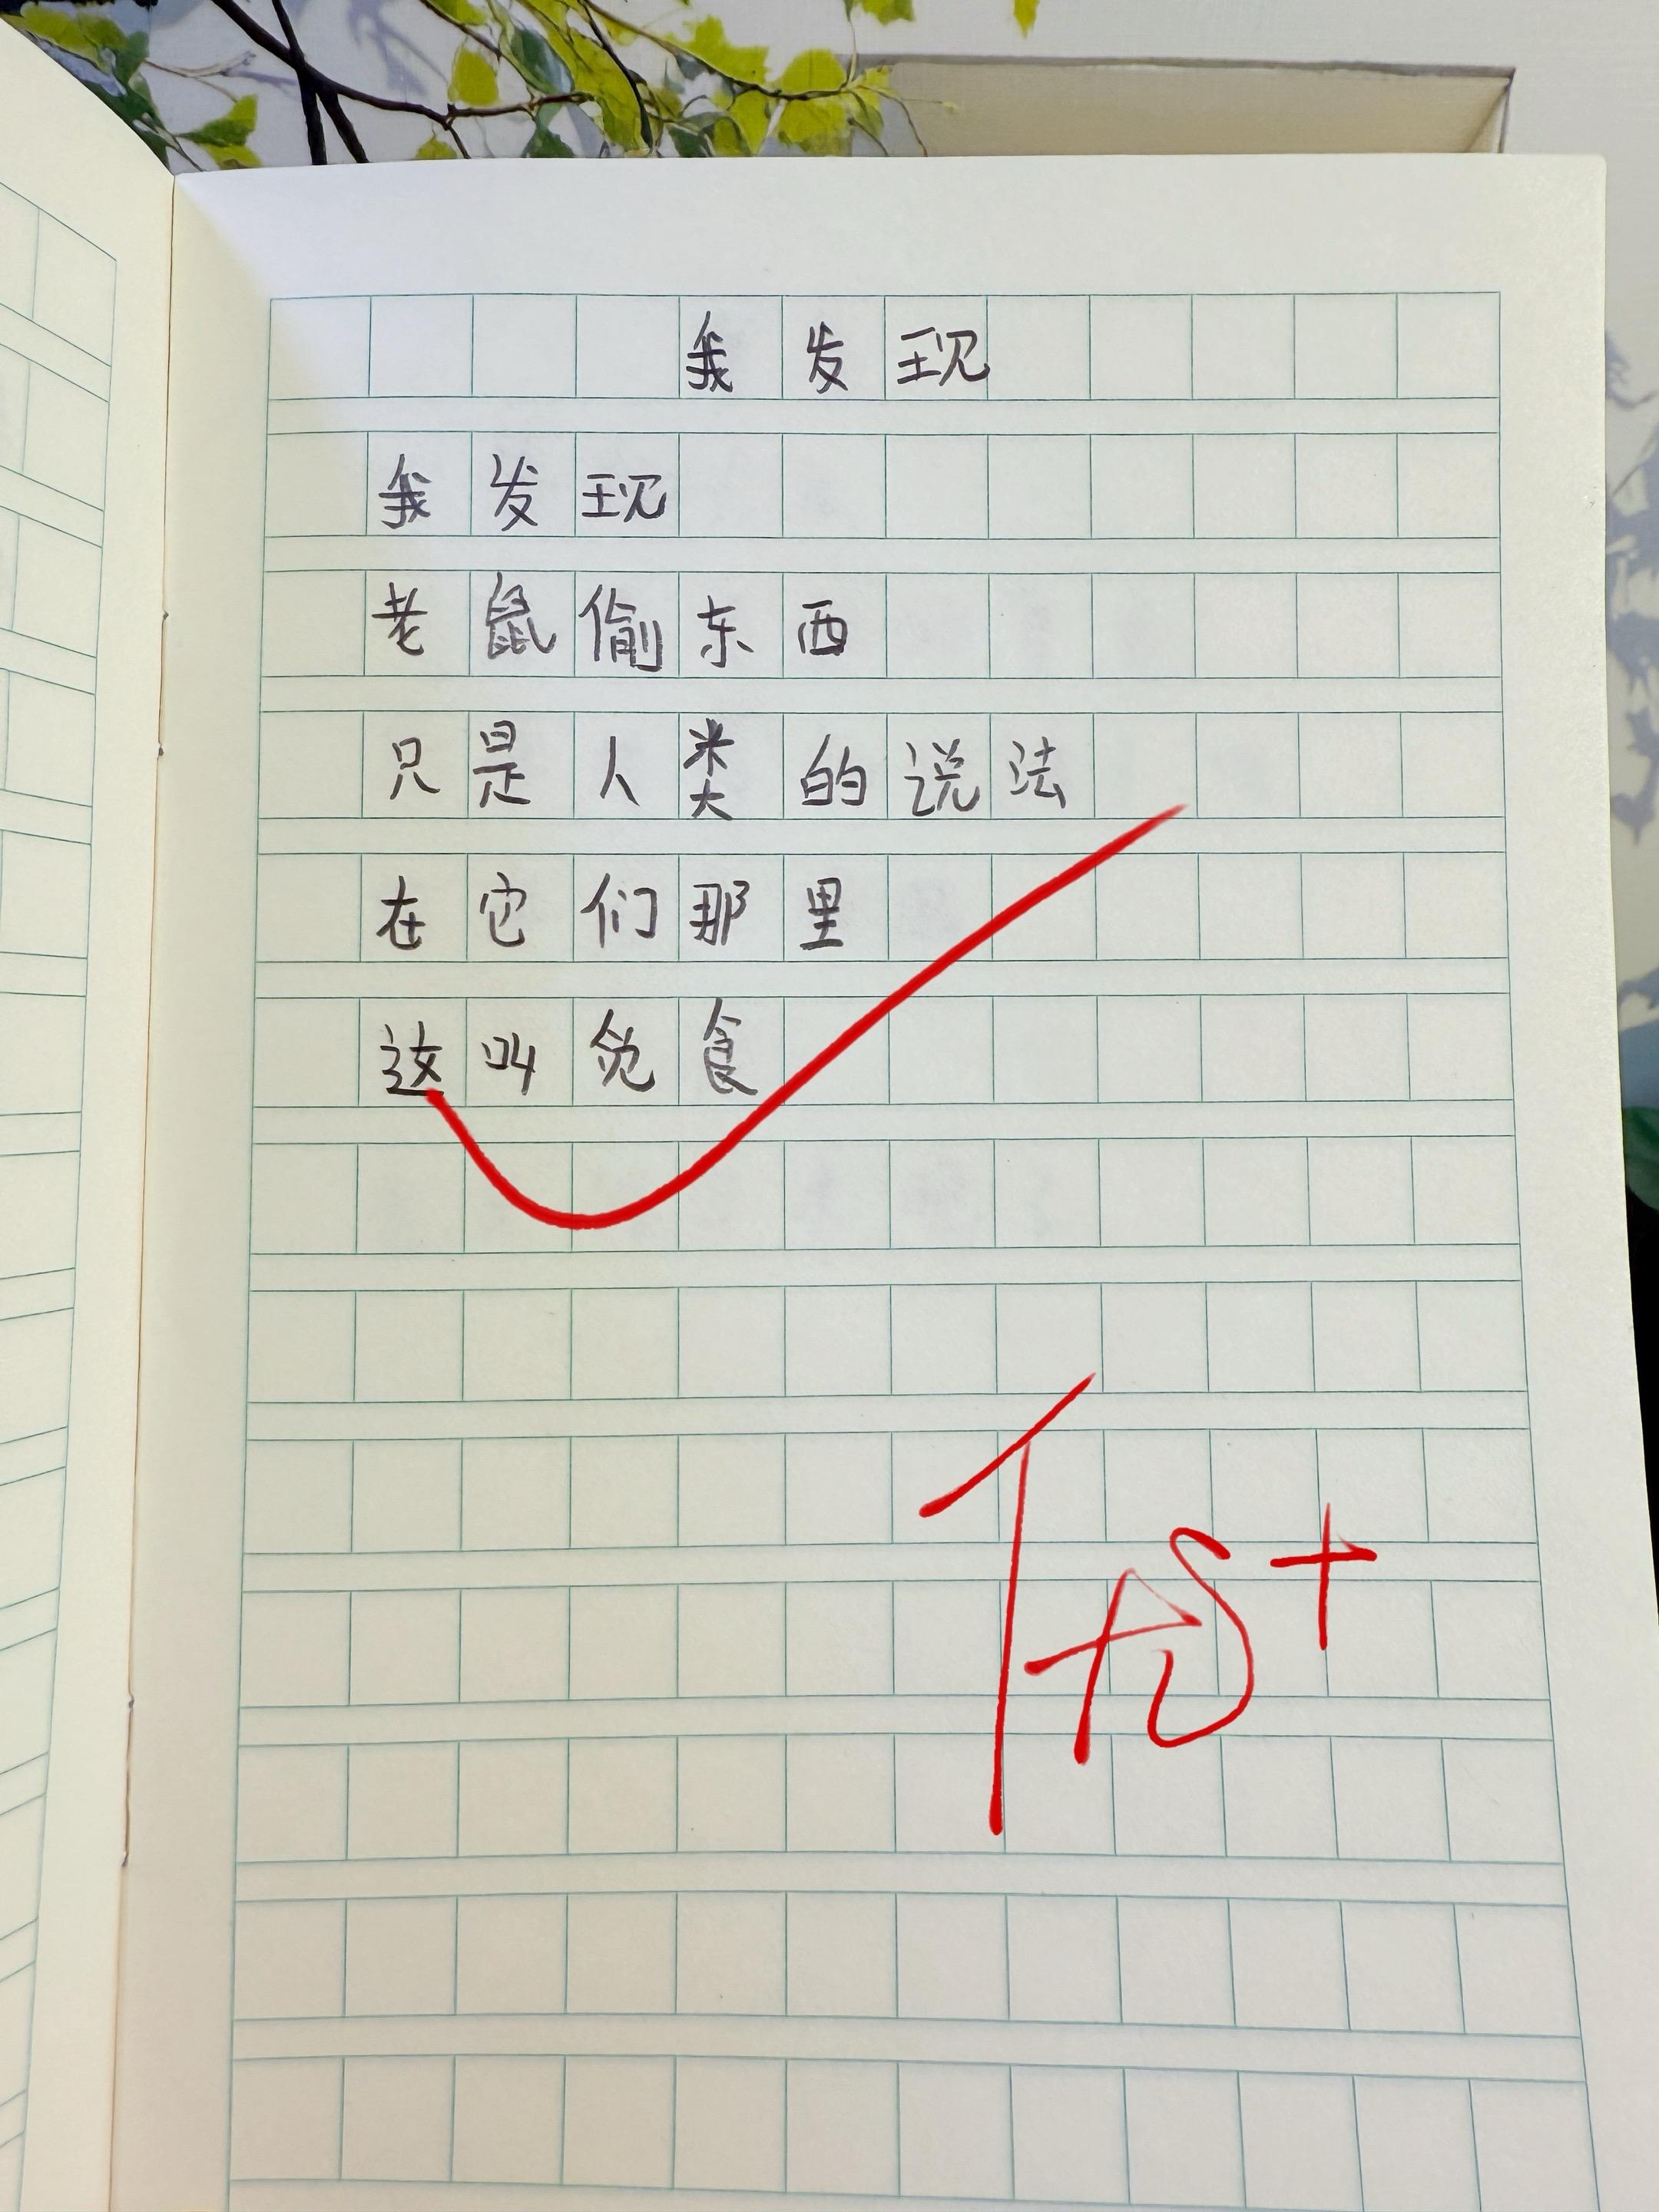 我发现
我发现
老鼠偷东西
只是人类的说法
在它们那里
这叫觅食